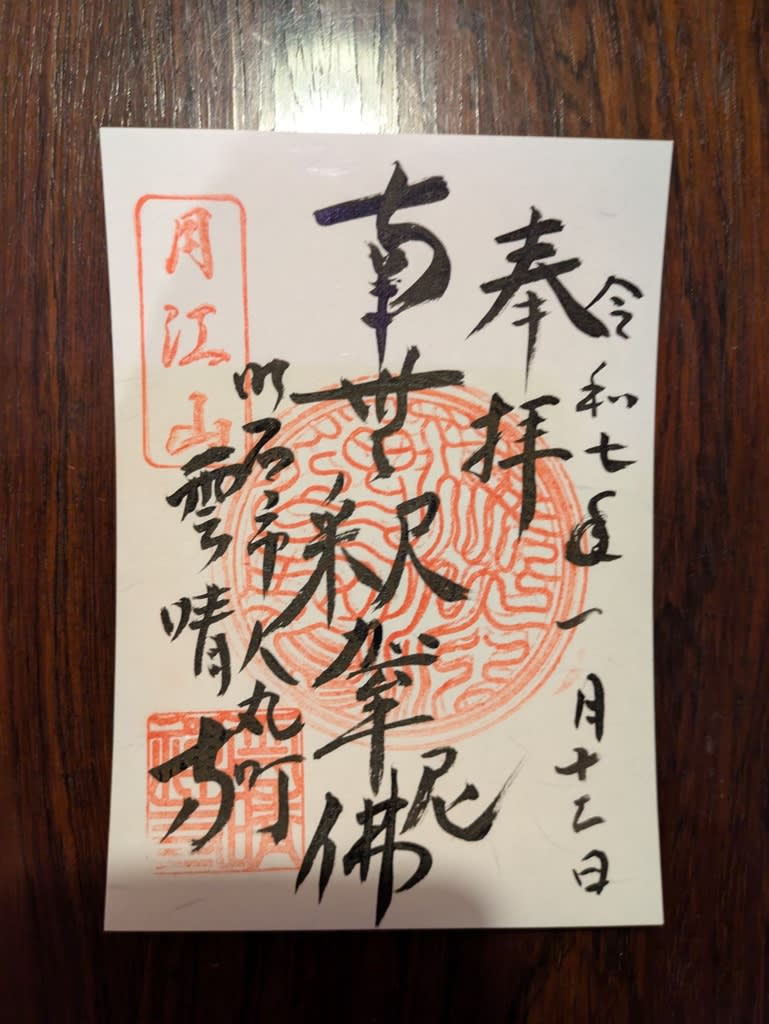 令和七年一月十二日
奉拝
南無釈迦牟尼佛
明石市人丸町
雲晴寺
月江山